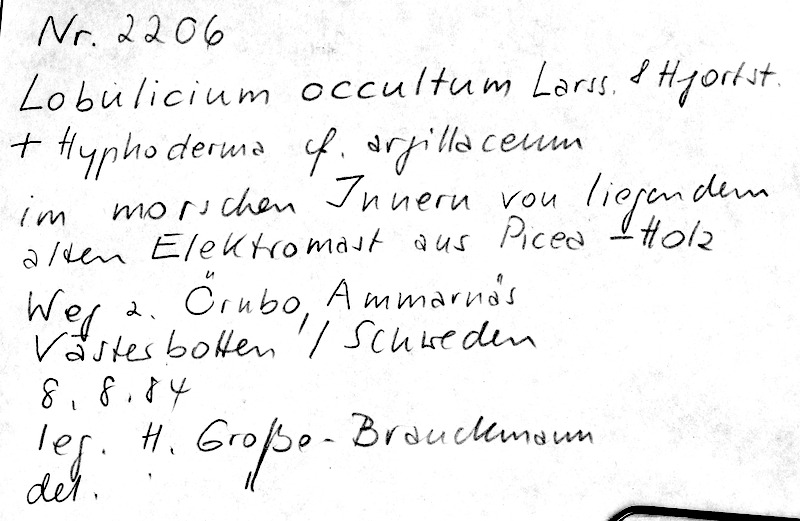 Nr. 2206
Lobulicium occultum Larss. & Hjortst.
+ Hyphoderma cf. argillaceum
im morschen Innern von liegendem
alten Elektromast aus Picea-Holz
Weg z. Örnbo, Ammarnäs
Västerbotten / Schweden
8. 8. 84
leg. H. Große-Brauckmann
det. "